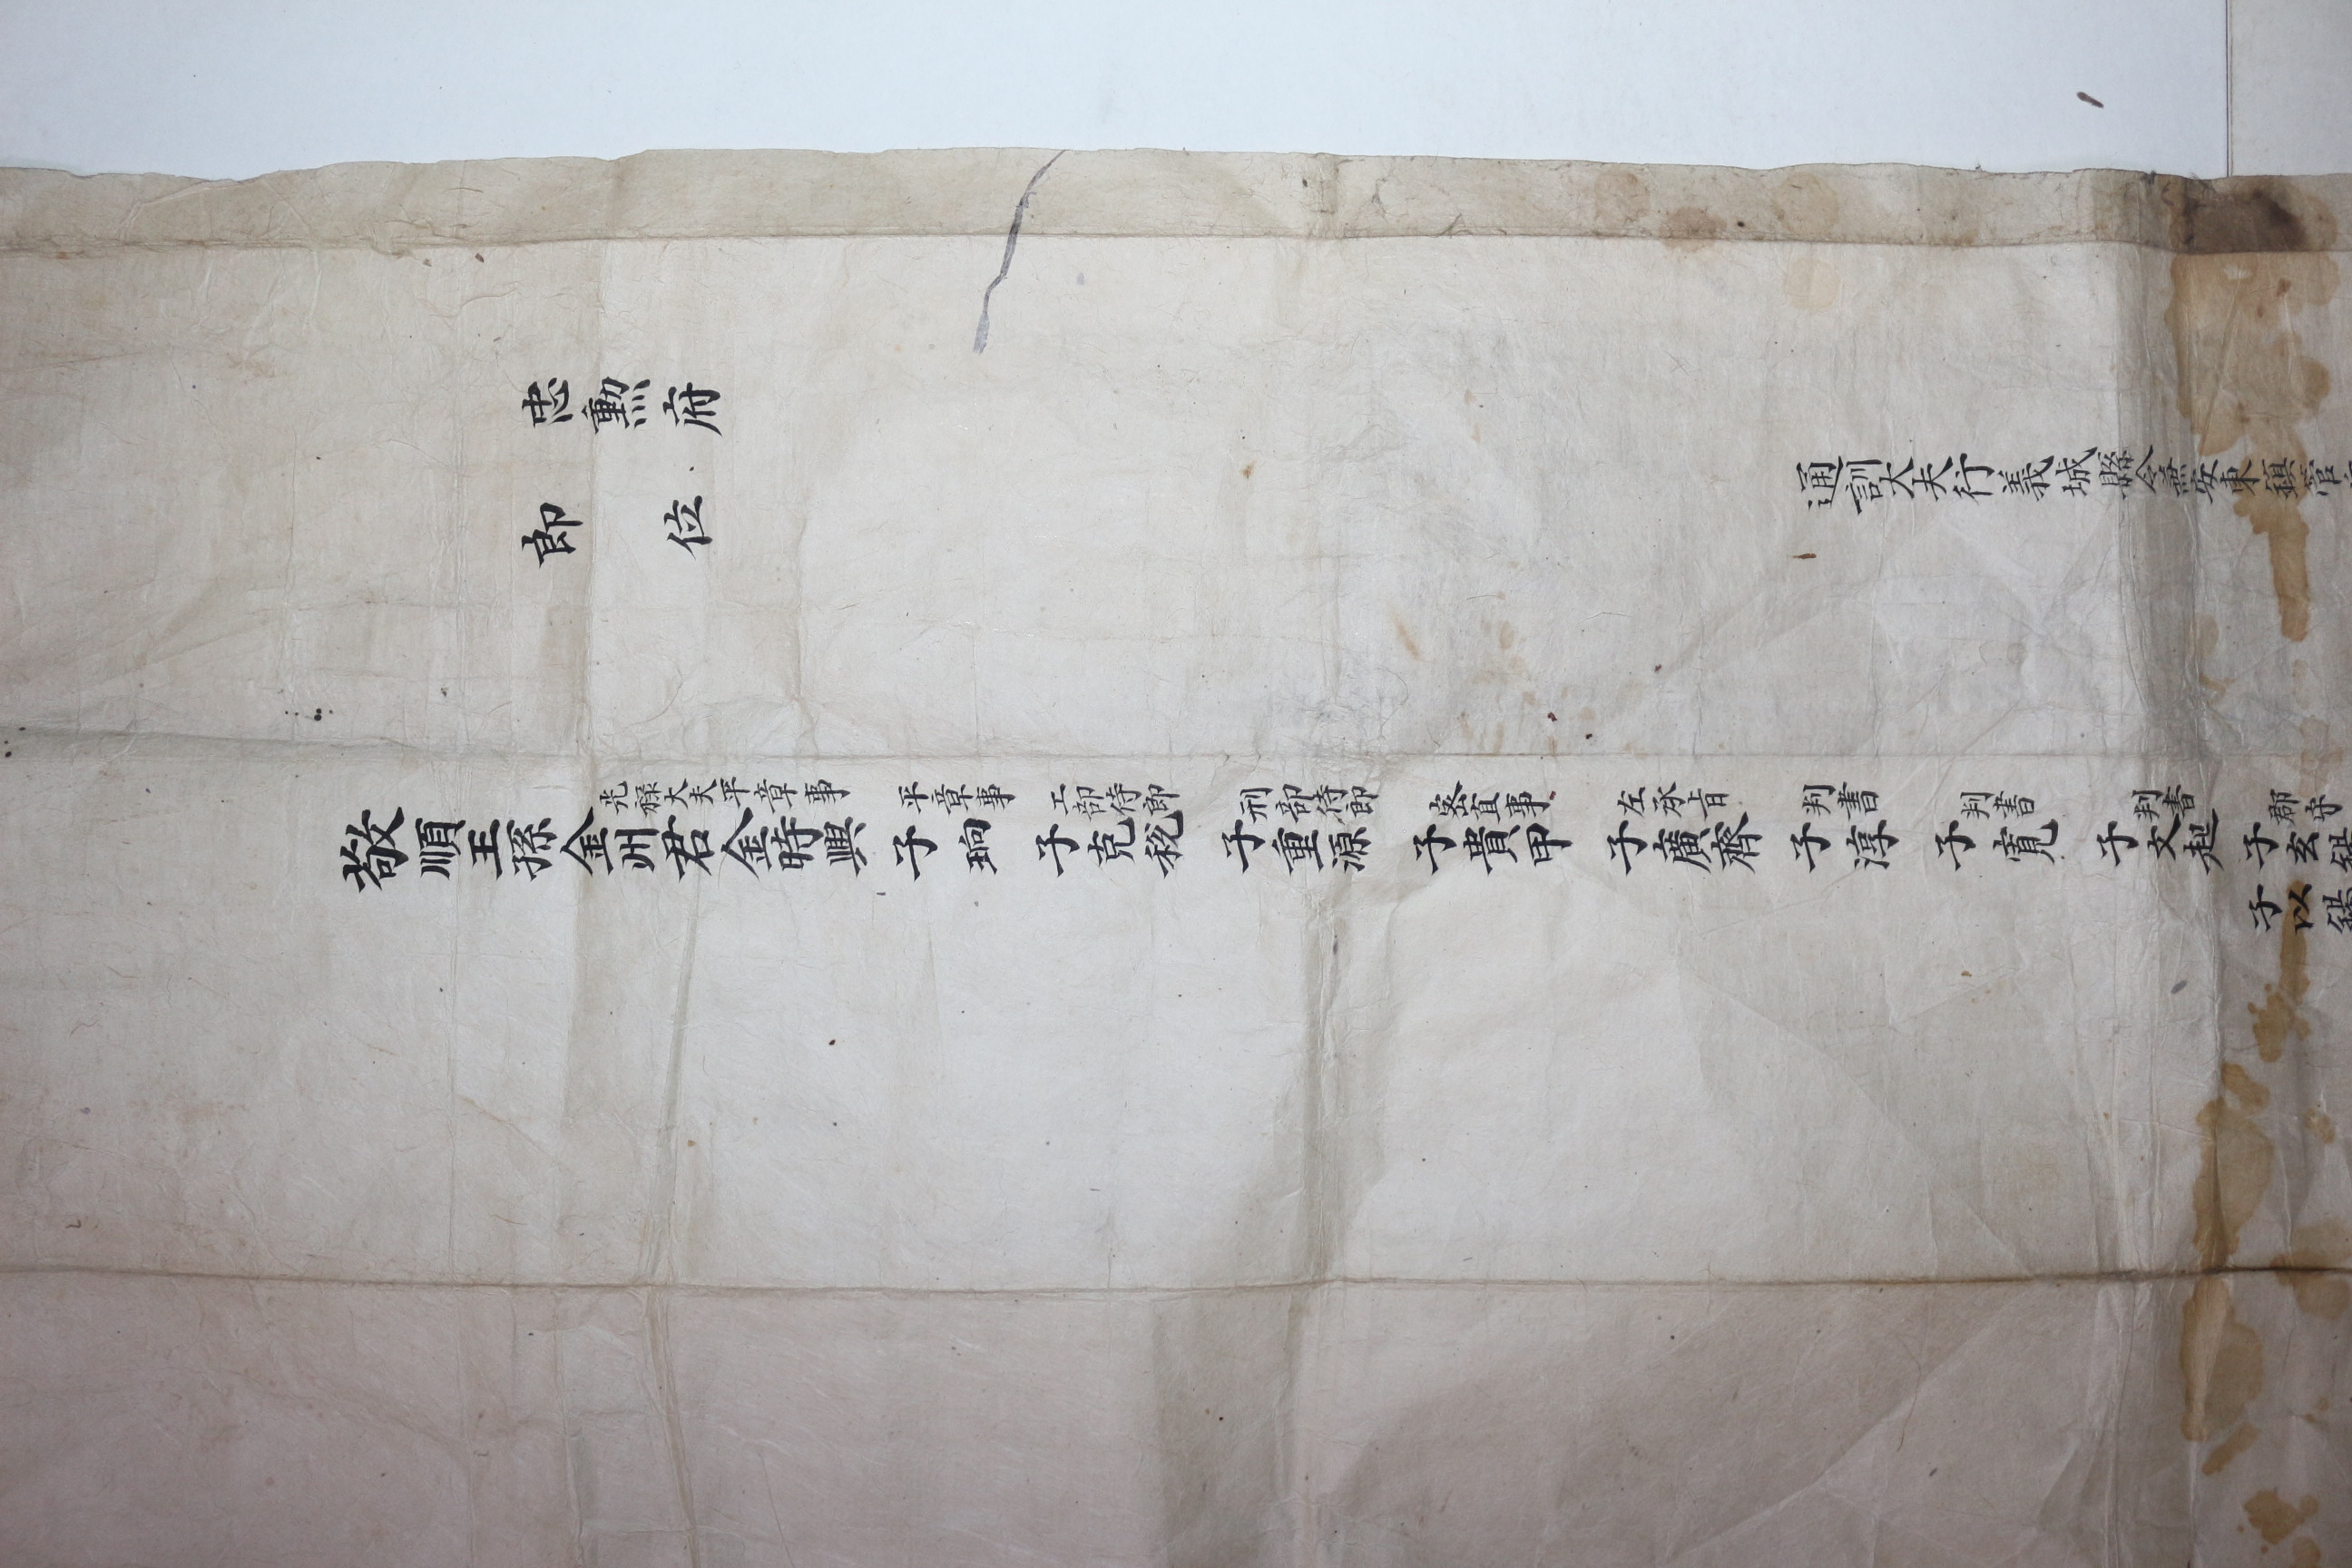 忠勳府
通訓大夫行義城縣令兼安東鎮管
郎位
光祿大夫平章事 平章事 工部侍郎 刑部侍郎 密直事 左承旨 判書 判書 判書 郡守
敬順王孫金州君金時興 子珦 子克稅 子重源 子貴甲 子廣齊 子淳 子寬 子文起 子玄錫
子以錫